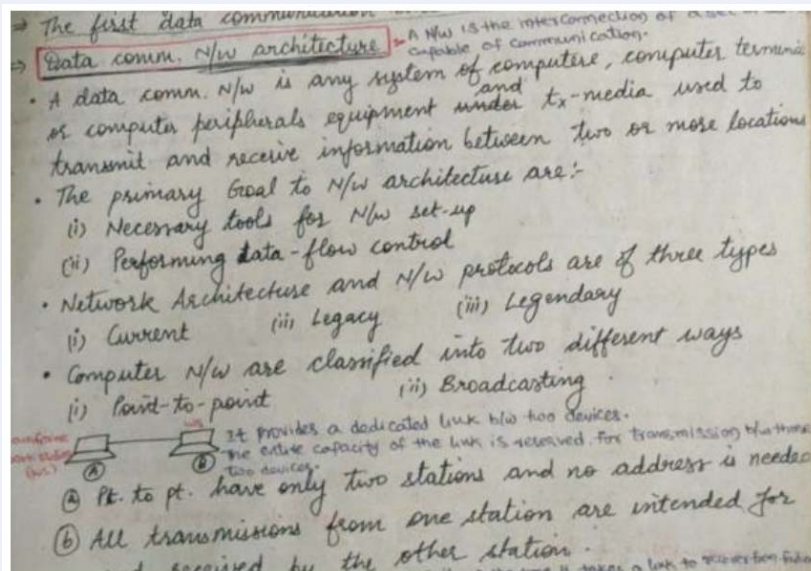 → The first data communication
⇒ Data comm. N/W architecture → A N/W is the interconnection of a set of
capable of communication.
• A data comm. N/W is any system of computers, computer
or computer peripherals equipment and under tx-media used to
transmit and receive information between two or more locations
• The primary Goal to N/W architecture are:-
(i) Necessary tools for N/W set-up
(ii) Performing data-flow control
• Network Architecture and N/W protocols are of three types
(i) Current (ii) Legacy (iii) Legendary
• Computer N/W are classified into two different ways
(i) Point-to-point (ii) Broadcasting
It provides a dedicated link b/w two devices.
The entire capacity of the link is reserved for transmission b/w those
two devices.
A B
(a) Pt. to pt. have only two stations and no address is needed
(b) All transmissions from one station are intended for
received by the other station.
takes a link to